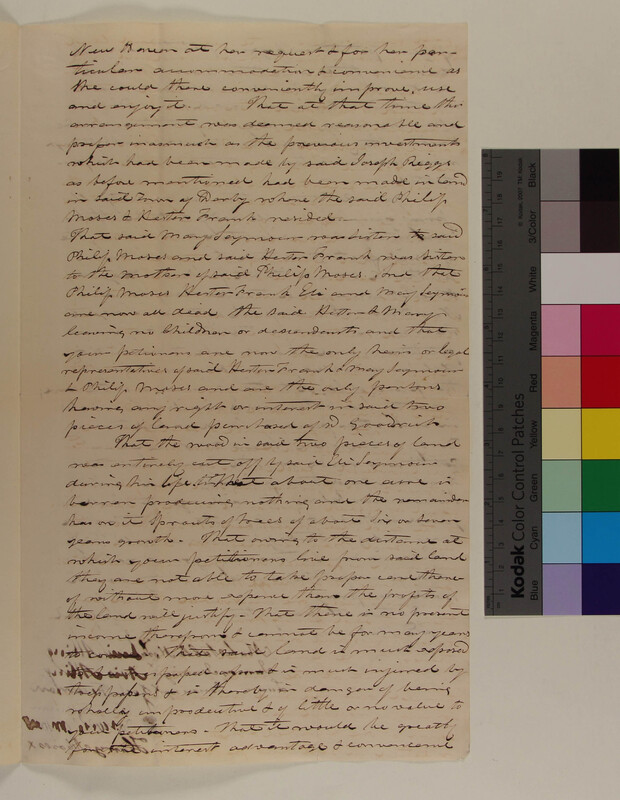 New Haven at her request & for her par-
ticular accommodation & convenience as
she could there conveniently improve, use
and enjoy it. That at that time this
arrangement was deemed reasonable and
proper inasmuch as the previous investments
which had been made by said Joseph Riggs
as before mentioned had been made in land
in said Town of Derby where the said Philip
Moses & Hester Frank resided.
That said Mary Seymour was sister to said
Philip Moses and said Hester Frank was sister
to the mother of said Philip Moses, and that
Philip Moses Hester Frank Eli and Mary Seymour
are now all dead the said Hester & Mary
leaving no Children or descendants and that
your petitioners are now the only heirs or legal
representatives of said Hester Frank & Mary Seymour
& Philip Moses and are the only persons
having any right or interest in said two
pieces of land purchased of sd. Goodrich
That the wood on said two pieces of land
was entirely cut off by said Eli Seymour
during his life. that about one acre is
barren producing nothing and the remainder
has on it Sprouts of trees of about six or seven
years growth. That owing to the distance at
which your petitioners live from said land
they are not able to take proper care there-
of without more expense than the profits of
the land will justify. That there is no present
income therefrom & cannot be for many years
to come. That said land is much exposed
to & is much injured by
trespassers & is thereby in danger of being
wholly unproductive & of little or no value to
your petitioners. That it would be greatly
for the interest advantage & convenience
Kodak Color Control Patches
Blue Cyan Green Yellow Red Magenta White 3/Color Black